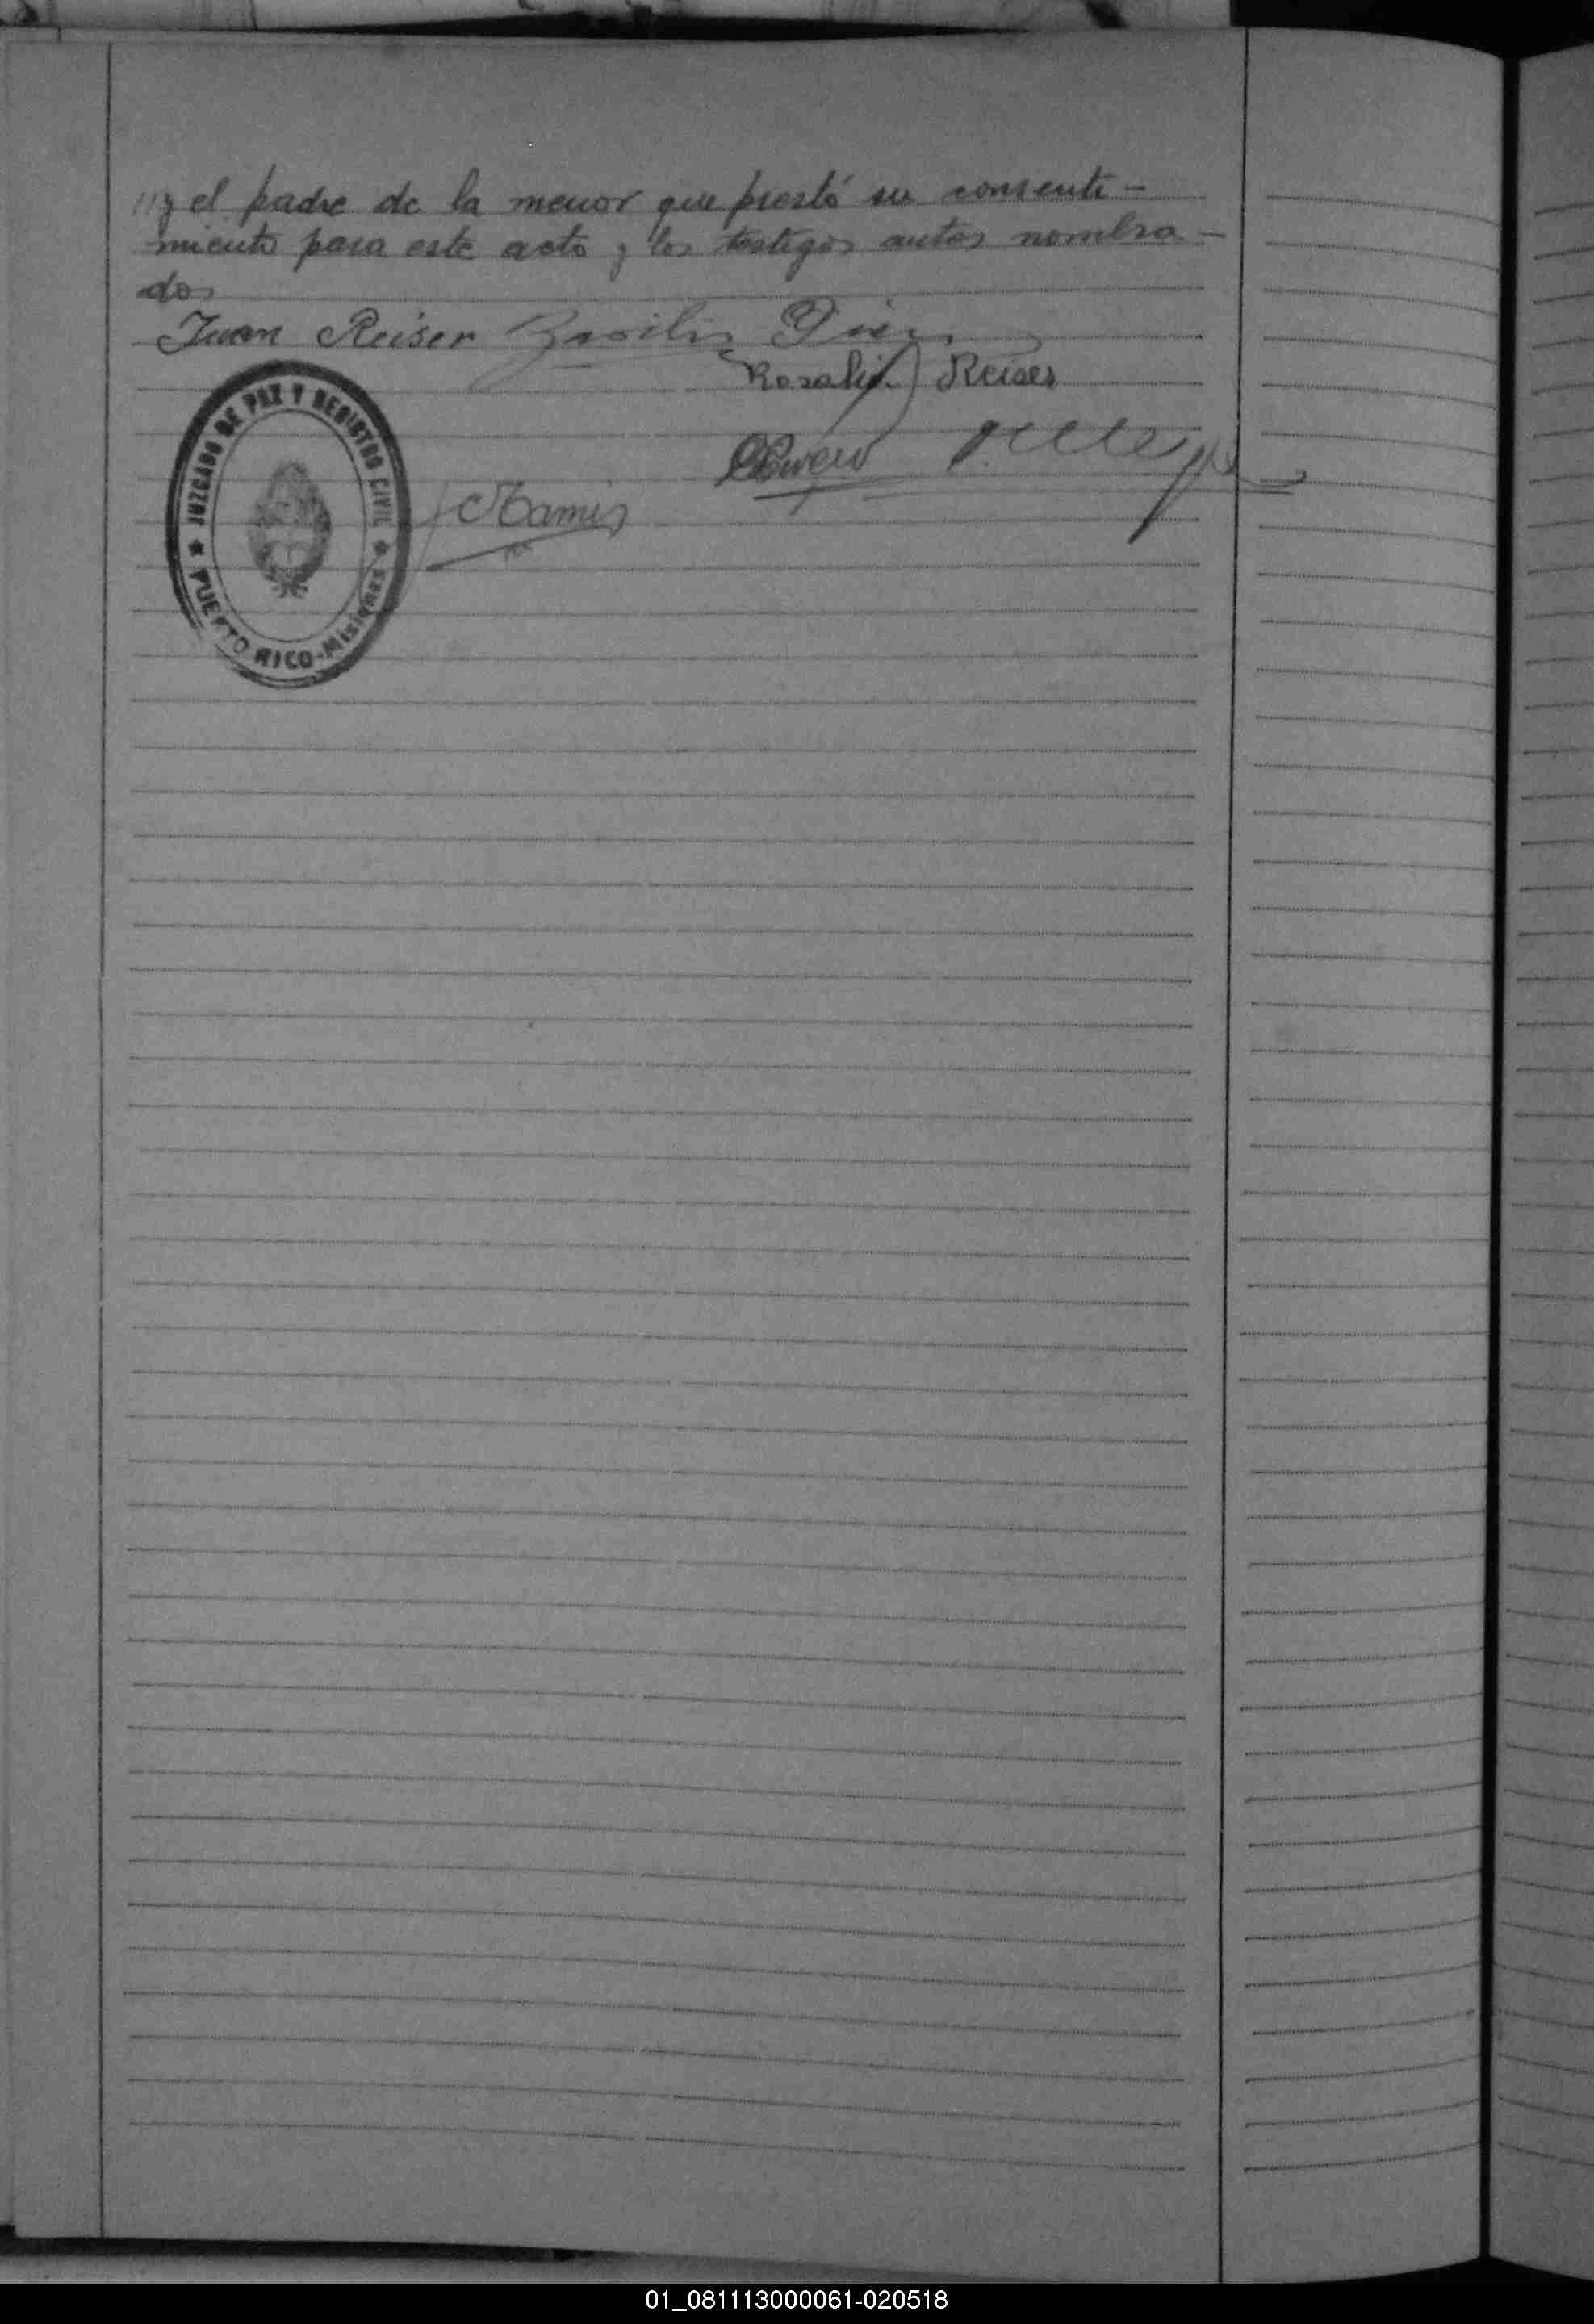 ///y el padre de la menor que prestó su consenti-
miento para este acto y los testigos antes nombra-
dos
Juan Reiser Basilio
Rosalia Reiser
JUZGADO DE PAZ Y REGISTRO CIVIL
PUERTO RICO-Misiones
01_081113000061-020518